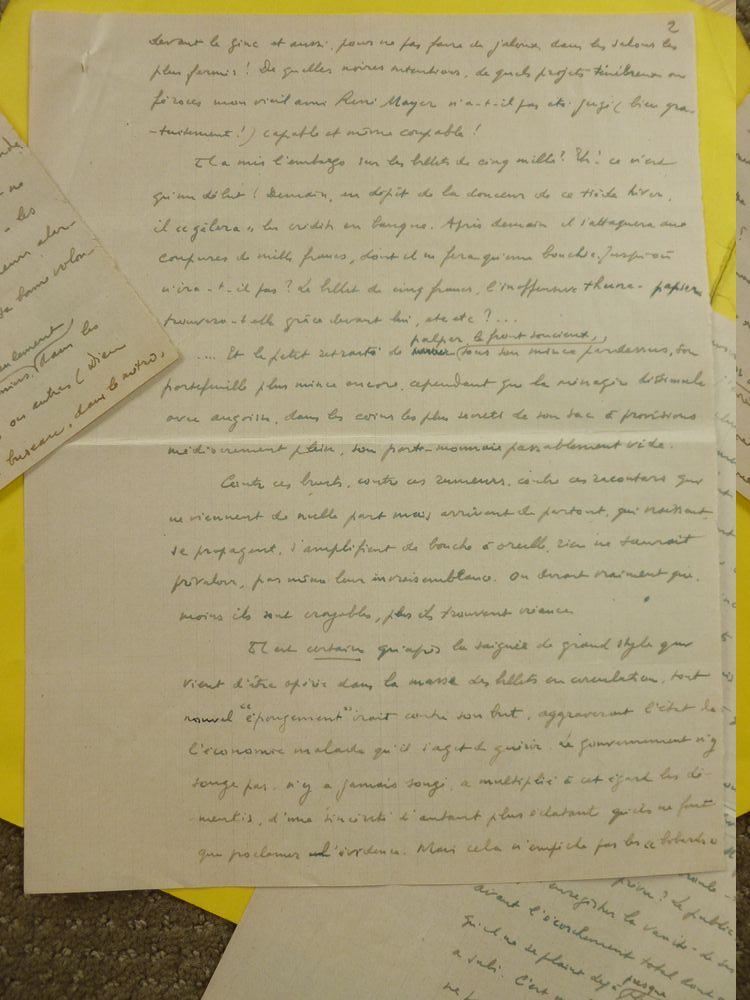 2
devant le zinc et aussi, pour ne pas faire de jaloux, dans les salons les
plus fermés ! De quelles noires intentions, de quels projets ténébreux ou
féroces mon vieil ami René Mayer n'a-t-il pas été jugé (bien gra-
-tuitement !) capable et même coupable !
Il a mis l'embargo sur les billets de cinq mille ? Eh ! ce n'est
qu'un début ! Demain, en dépit de la douceur de ce tiède hiver,
il « gèlera » les crédits en banque. Après demain il s'attaquera aux
coupures de mille francs, dont il ne fera qu'une bouchée. Jusqu'où
n'ira-t-il pas ? Le billet de cinq francs, l'inoffensive thune-papier
trouvera-t-elle grâce devant lui, etc etc ? ...
palper, le front soucieux,
.... Et le petit retraité de sous son mince pardessus, son
portefeuille plus mince encore, cependant que la ménagère dissimule
avec angoisse, dans les coins les plus secrets de son sac à provisions
médiocrement plein, son porte-monnaie passablement vide.
Contre ces bruits, contre ces rumeurs, contre ces racontars qui
ne viennent de nulle part mais arrivent de partout, qui
se propagent, s'amplifient de bouche à oreille, rien ne saurait
prévaloir, pas même leur invraisemblance. On dirait vraiment que
moins ils sont croyables, plus ils trouvent créance.
Il est certain qu'après la saignée de grand style qui
vient d'être opérée dans la masse des billets en circulation, tout
nouvel "épongement" irait contre son but, aggraverait l'état de
l'économie malade qu'il s'agit de guérir. Le gouvernement n'y
songe pas, n'y a jamais songé, a multiplié à cet égard les dé-
mentis, d'une sincérité d'autant plus éclatante qu'ils ne font
que proclamer l'évidence. Mais cela n'empêche pas les « bobards »
ne
les
bonne volon-
dans les
ou autres (Dieu
bureau, dans le métro,
Le public
enregistrer la
avant l'écorchement total dont
qu'il ne se plaint déjà presque
a subi. C'est